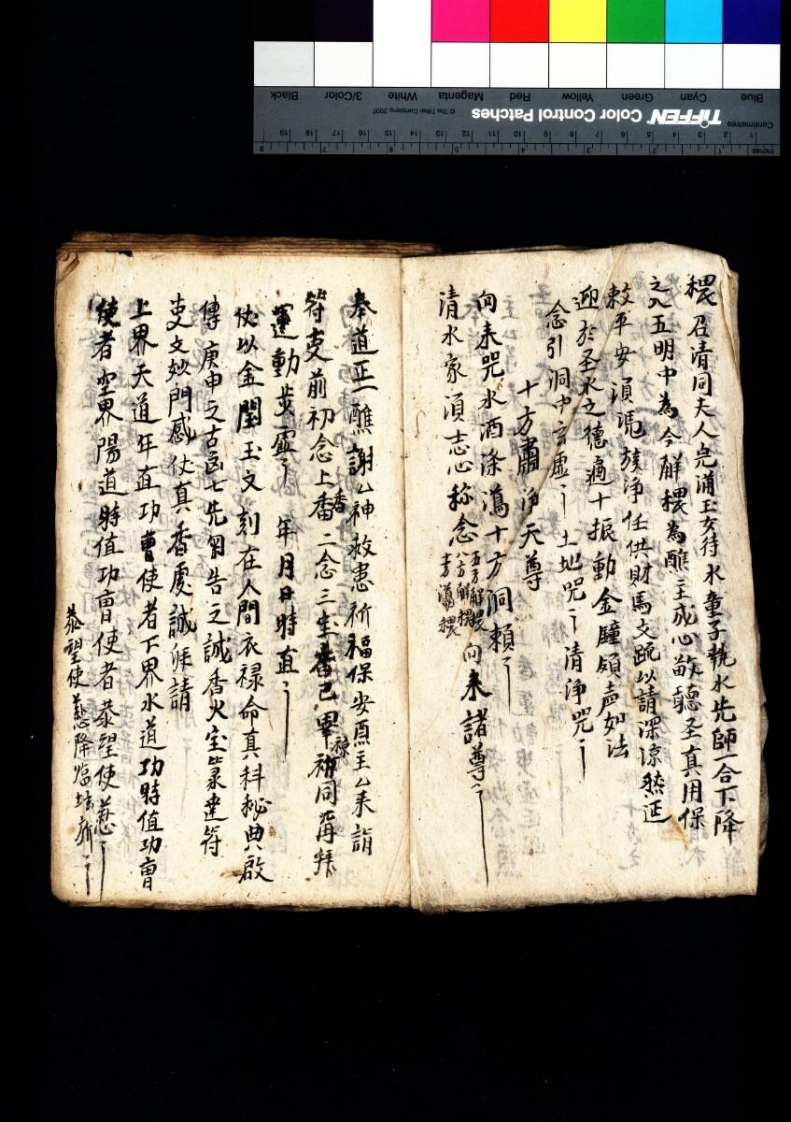 穢召清同夫人皃滿玉女待水童子執水先師一合下降
之入五明中為今觧穢為醮主成心啟聽圣真用保
敕平安 湏 淨 任供財馬文䟽以請深凉然延
迎於圣水之德 十振動金 如法
念引洞中玄虛 土地咒 清淨咒
十方肅淨天尊
向来咒水洒滌蕩十方洞賴
清水家湏志心称念 五方解穢 八方解穢 蕩穢 向来諸尊
奉道正一醮謝 神救患祈福保安 主 来詣
符吏前初念上香二念三 香已畢 同再拜
運動步虛 年月日時直
伏以金闕玉文刻在人間衣禄命真科秘典啟
傳庚申之古 七先 告之誠香火宝籙建符
吏文妙門感仗真香虔誠拜請
上界天道年直功曹使者下界水道功時值功曺
使者空界陽道時值功曺使者恭望使慈
恭望使慈降临坛
Blue
Cyan
Green
Yellow
Red
Magenta
White
3/Color
Black
TIFFEN Color Control Patches
© The Tiffen Company, 2007
Centimetres
Inches
1 2 3 4 5 6 7 8 9 10 11 12 13 14 15 16 17 18 19